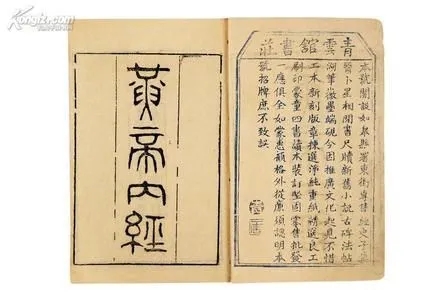 Kongfz.com
青雲館書莊
本號開設如皋縣署東街專售經史子集
醫卜星相閒書尺牘新舊小說古碑法帖
湖筆徽墨端硯今因推廣文化起見不惜
工本新刻版章揀選淨純重紙精選良工
刷印蒙童四書讀本裝訂堅固零售批發
一應俱全如蒙惠顧格外從廉須認明本
號招牌庶不致誤
黃帝內經